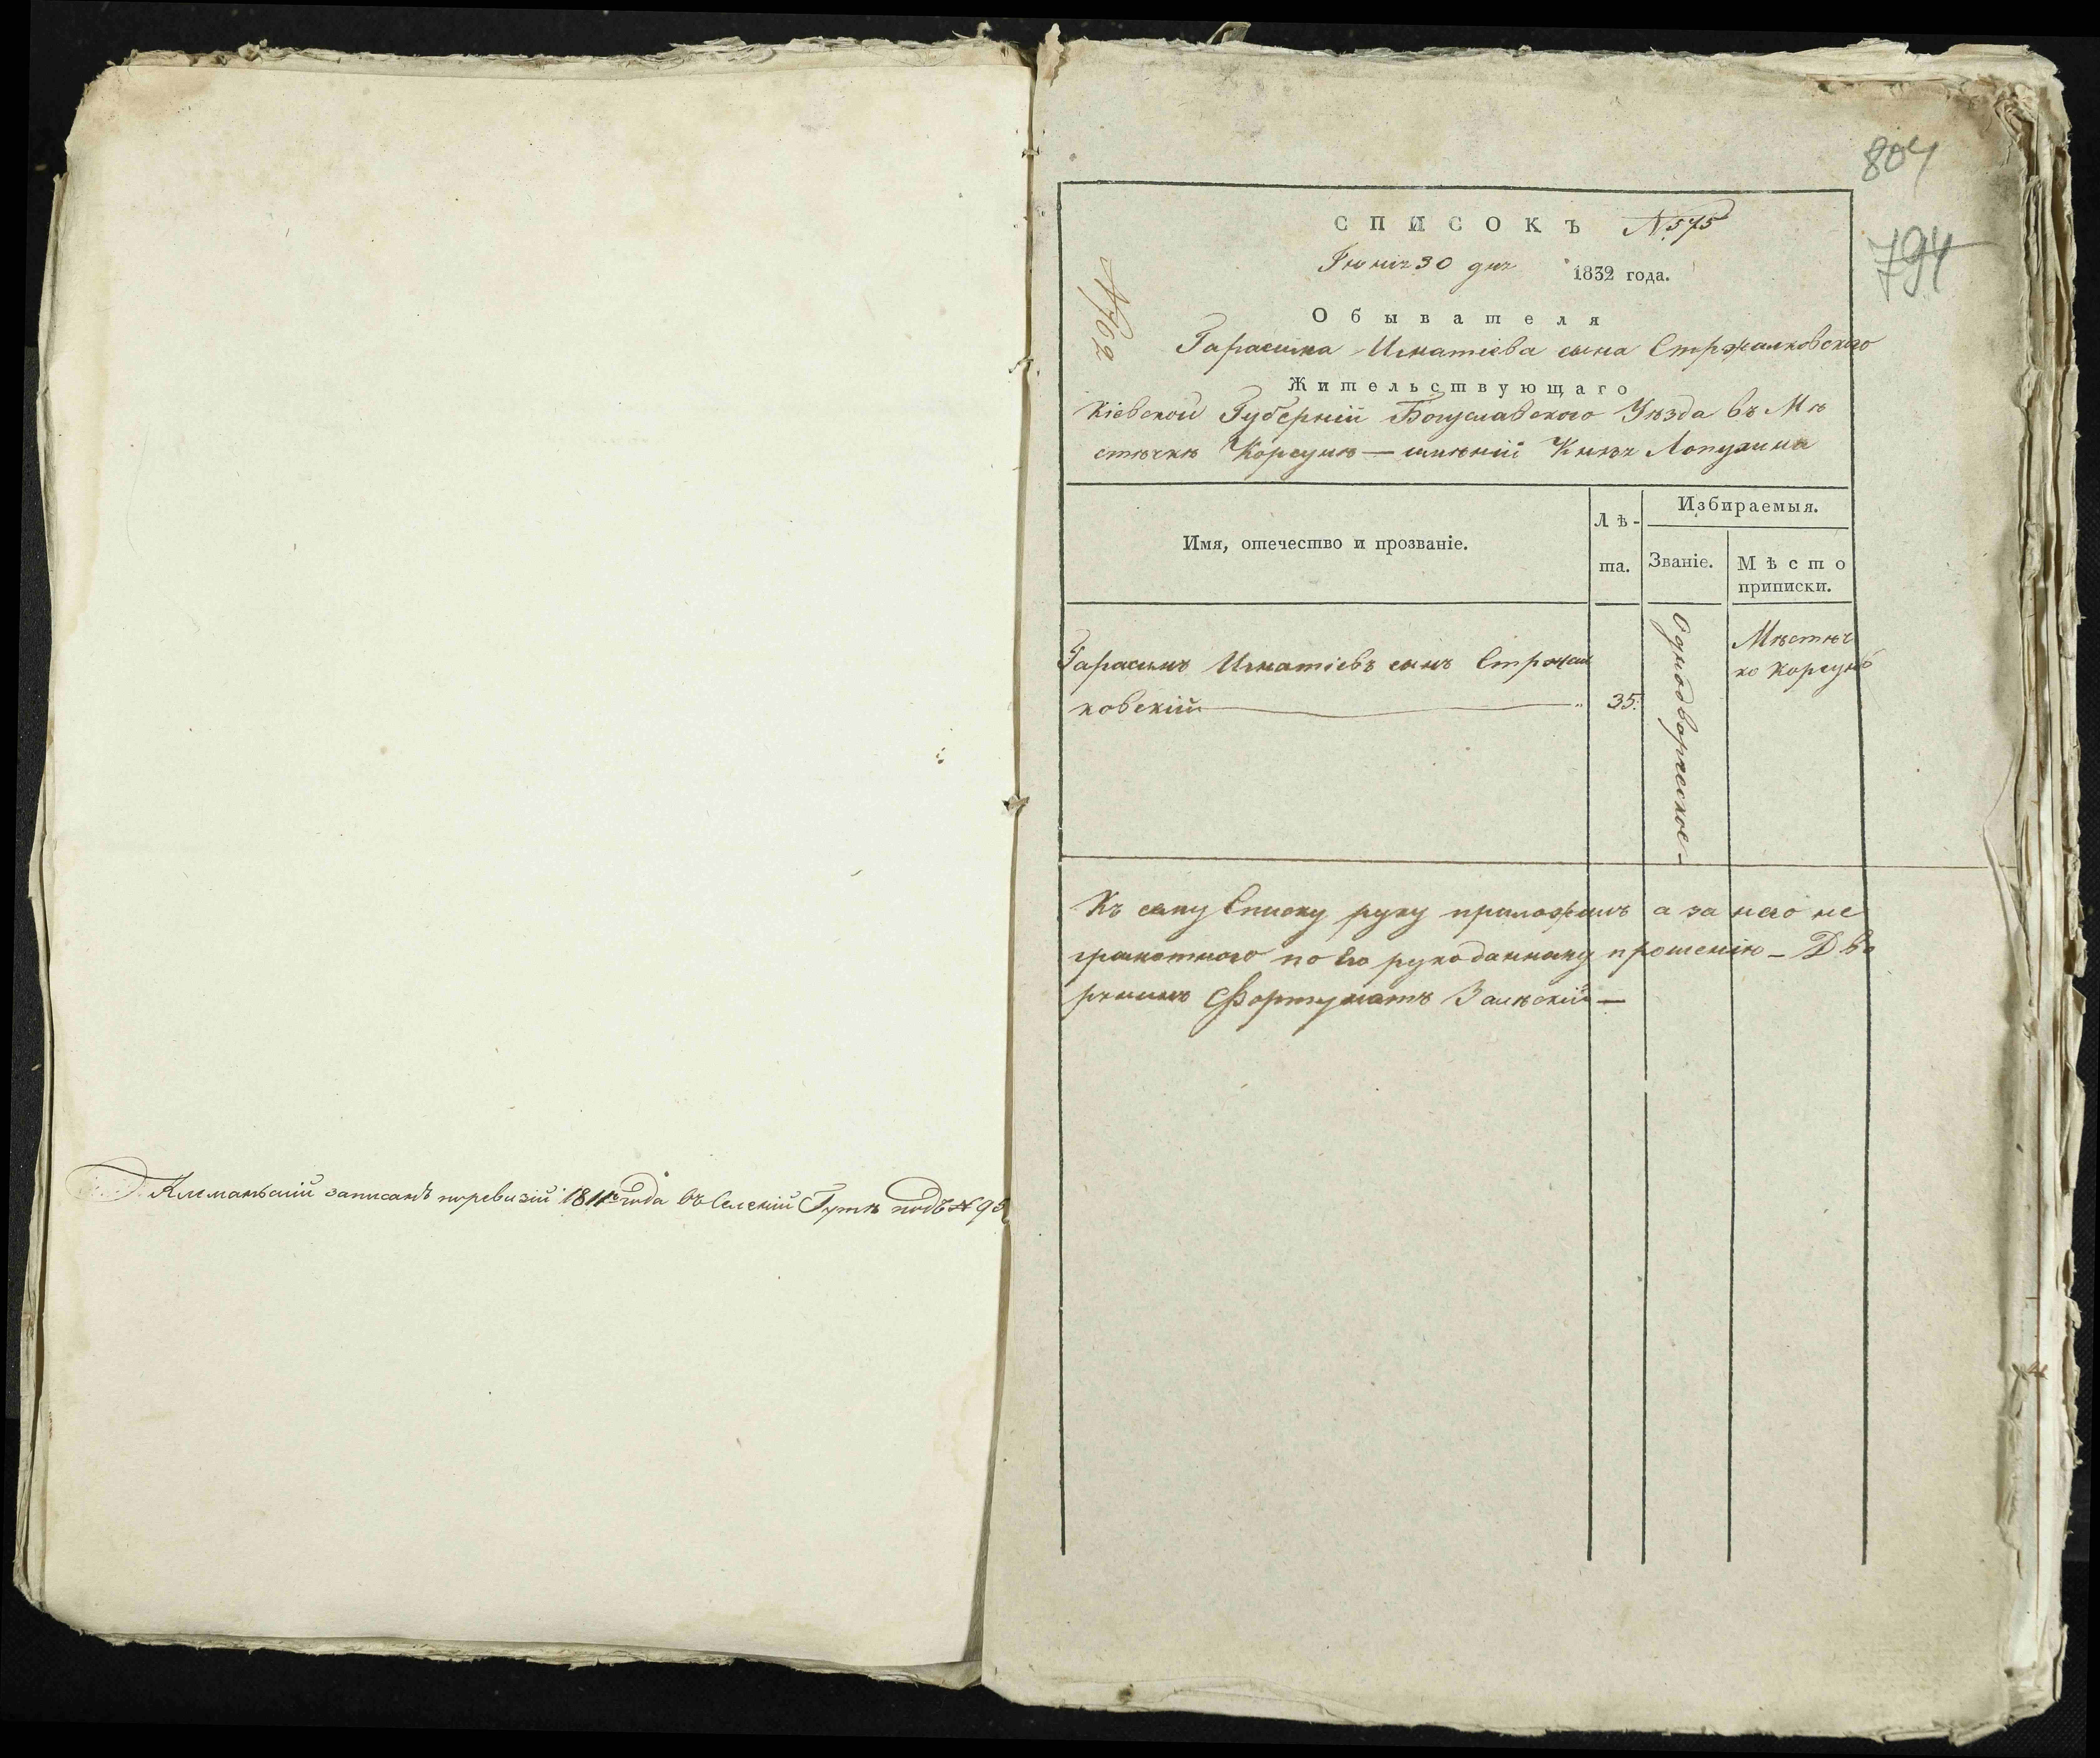 Клеманьсий записанъ поревизіи 1811 года въ Селенiи Гутѣ подъ № 95
804
794
СПИСОКЪ № 575
Іюня 30 дня 1832 года.
№ 762
Обывателя
Гарасима Игнатіева сына Стржалковского
Жительствующаго
Кіевской Губерніи Богуславского Уѣзда въ Мѣ
стѣчкѣ Корсунѣ — имѣніи Князя Лопухина
Имя, отечество и прозваніе.
Лѣ-
та.
Избираемыя.
Званіе.
Мѣсто
приписки.
Гарасимъ Игнатіевъ сынъ Стржал
ковскій
35.
Однодворческое
Мѣстеч
ко Корсунь
Къ сему Списку руку приложилъ а за него не
грамотного по Его рукоданному прошенію – Дво
рянинъ Фортунатъ Залѣскій —